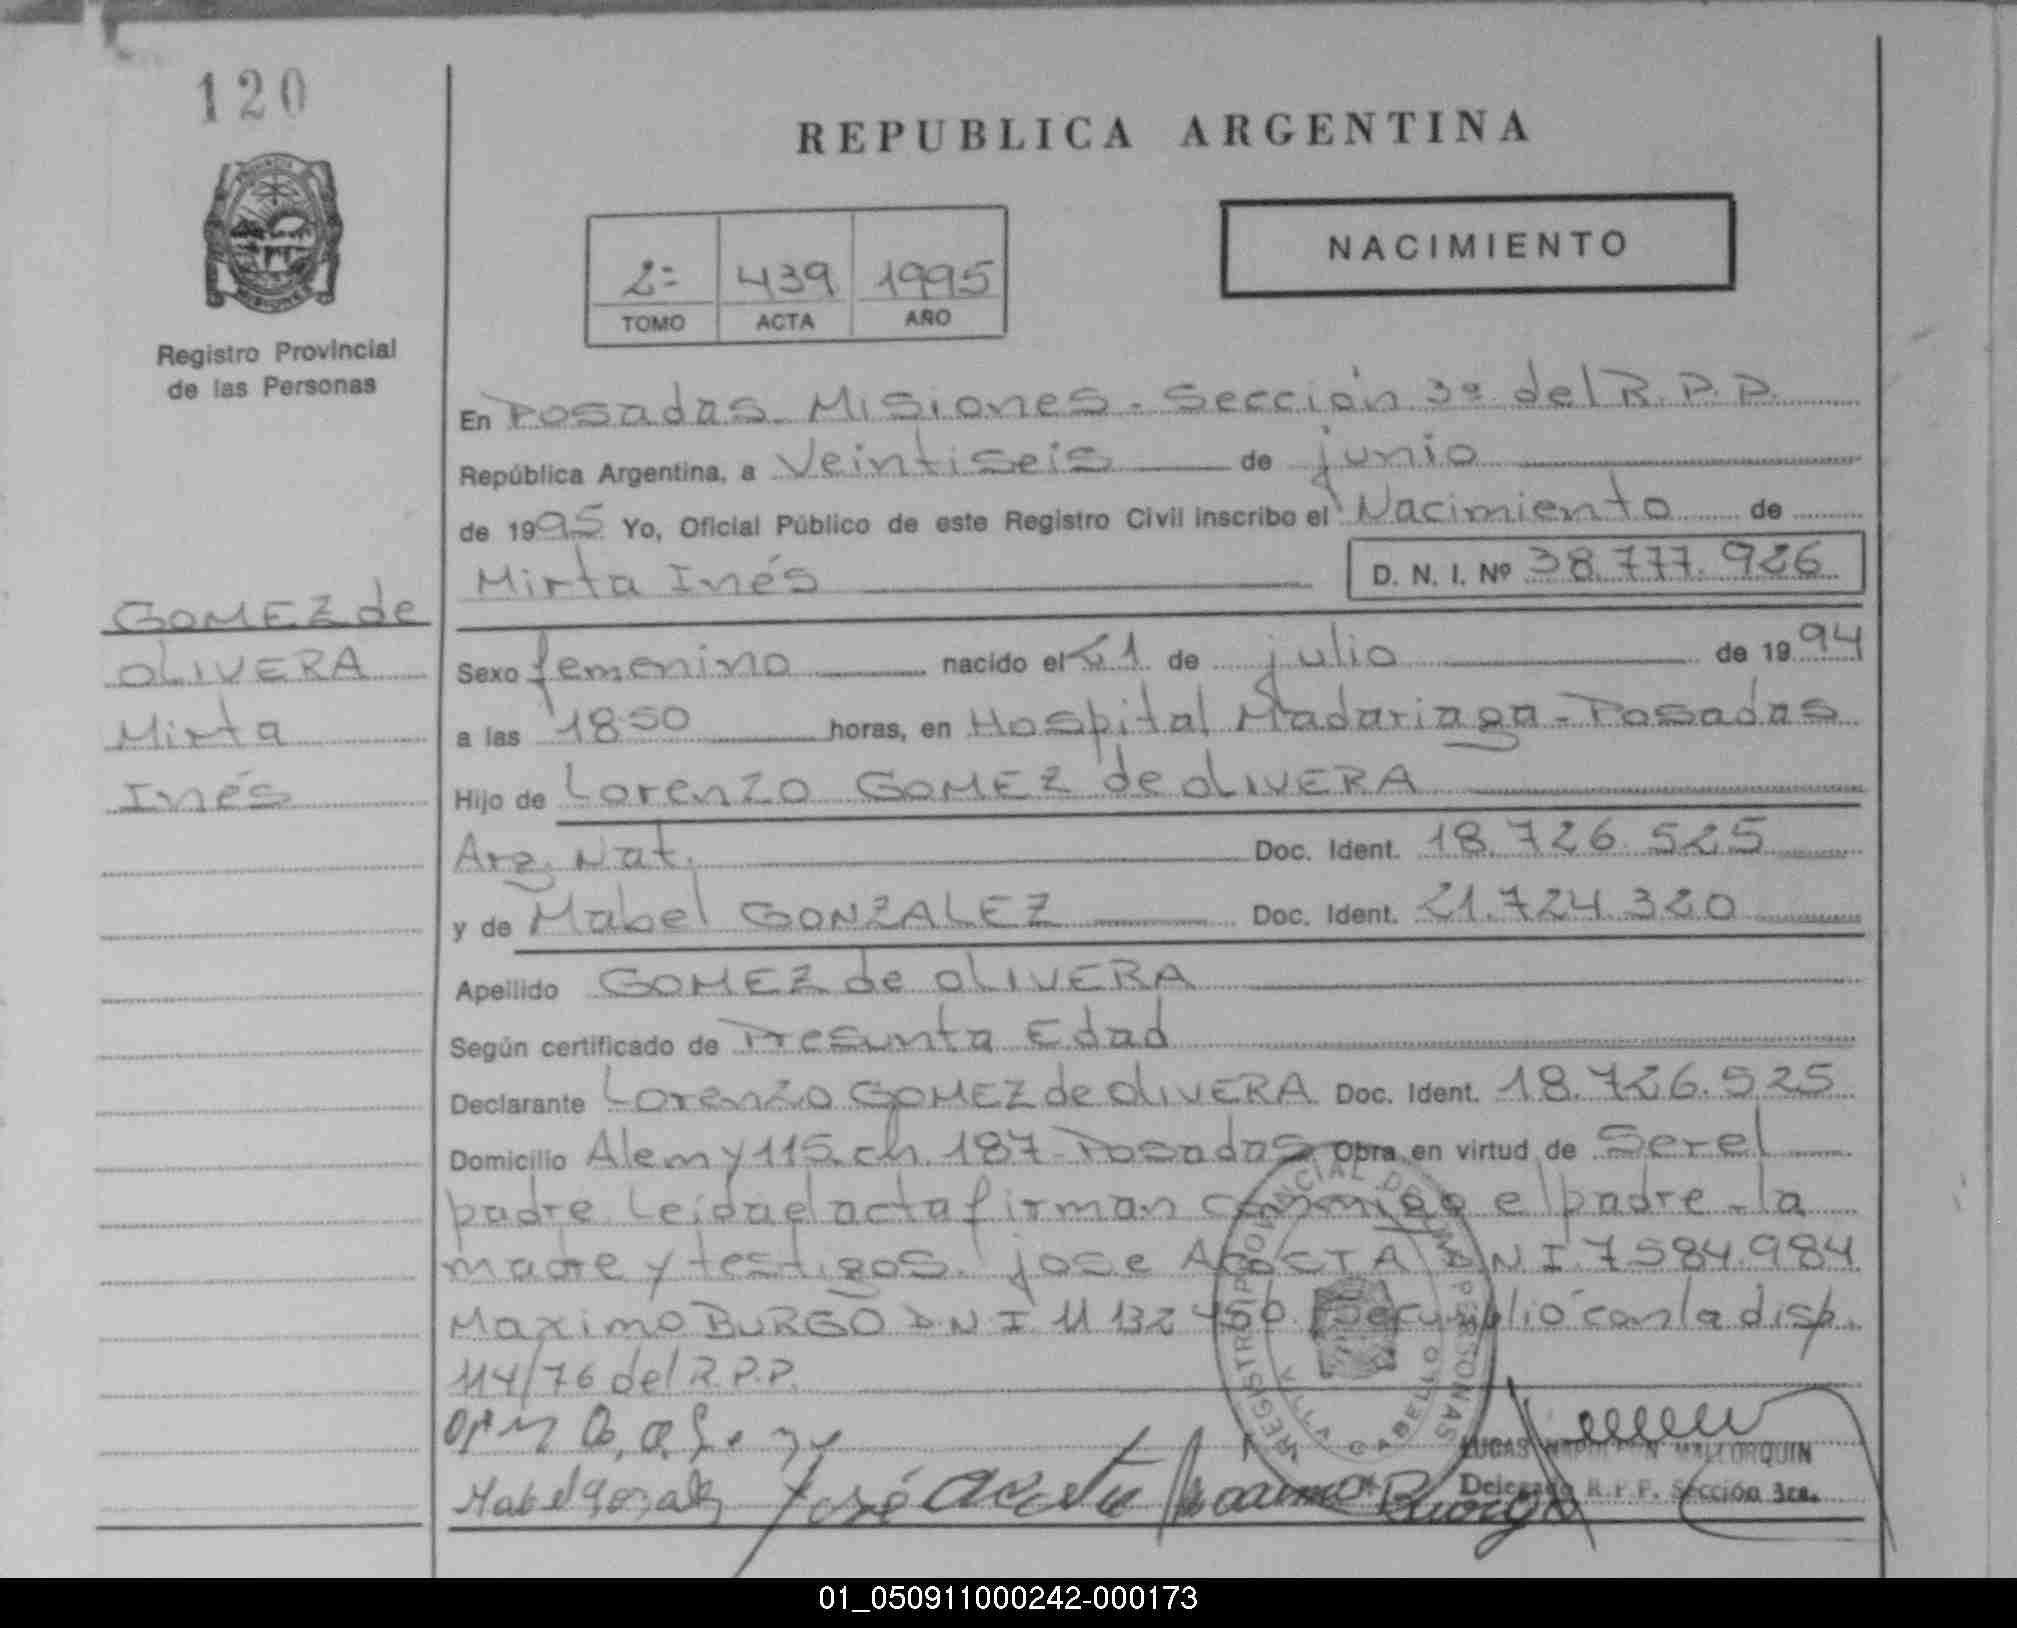 120
REPUBLICA ARGENTINA
NACIMIENTO
2º 439 1995
TOMO ACTA AÑO
Registro Provincial
de las Personas
En Posadas Misiones - Sección 3ª del R.P.P.
República Argentina, a Veintiseis de junio
de 1995 Yo, Oficial Público de este Registro Civil inscribo el Nacimiento de
Mirta Inés D. N. I. Nº 38.777.926
GOMEZ de
OLIVERA
Mirta
Inés
Sexo femenino nacido el 21 de julio de 1994
a las 18.50 horas, en Hospital Madariaga - Posadas
Hijo de Lorenzo GOMEZ de OLIVERA
Arg. Nat. Doc. Ident. 18.726.525
y de Mabel GONZALEZ Doc. Ident. 21.724.320
Apellido GOMEZ de OLIVERA
Según certificado de Presunta Edad
Declarante Lorenzo GOMEZ de OLIVERA Doc. Ident. 18.726.525
Domicilio Alem y 115. ch. 187 - Posadas Obra en virtud de Ser el
padre. Leída el acta firman conmigo el padre - la
madre y testigos. jose ACOSTA D N I 7584.984
Maximo BURGO D N I 11 132 450. Se cumplió con la disp.
114/76 del R.P.P.
REGISTRO PROVINCIAL DE LAS PERSONAS
VILLA CABELLO
LUCAS NAPOLEON MALLORQUIN
Delegado R.P.P. Sección 3ra.
Mabel Gonzalez José Acosta Maximo Burgo
01_050911000242-000173